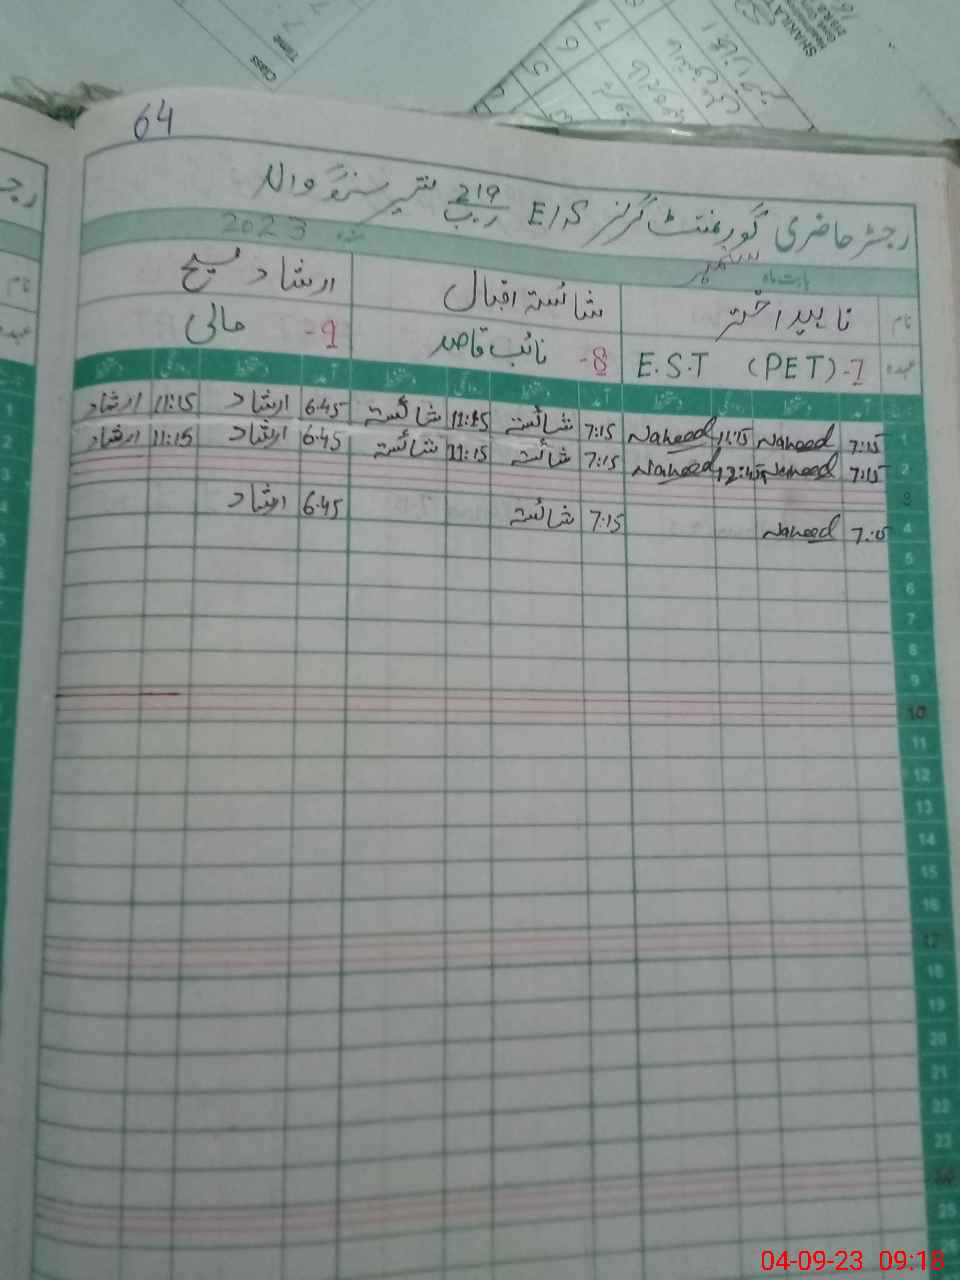 64
رجسٹر حاضری گورنمنٹ گرلز E/S 219 ر-ب
بابت ماہ ستمبر سنہ 2023
نام ناہید اختر شائستہ اقبال ارشاد مسیح
عہدہ 7- E.S.T (PET) 8- نائب قاصد 9- مالی
آمد دستخط روانگی دستخط آمد دستخط روانگی دستخط آمد دستخط روانگی دستخط
1 7:15 Naheed 11:15 Naheed 7:15 شائستہ 11:15 شائستہ 6:45 ارشاد 11:15 ارشاد
2 7:15 Naheed 12:45 Naheed 7:15 شائستہ 11:15 شائستہ 6:45 ارشاد 11:15 ارشاد
3
4 7:15 Naheed 7:15 شائستہ 6:45 ارشاد
5
6
7
8
9
10
11
12
13
14
15
16
17
18
19
20
21
22
23
24
25
26
Class
Time
SHAKILA
5
6
7
04-09-23 09:18